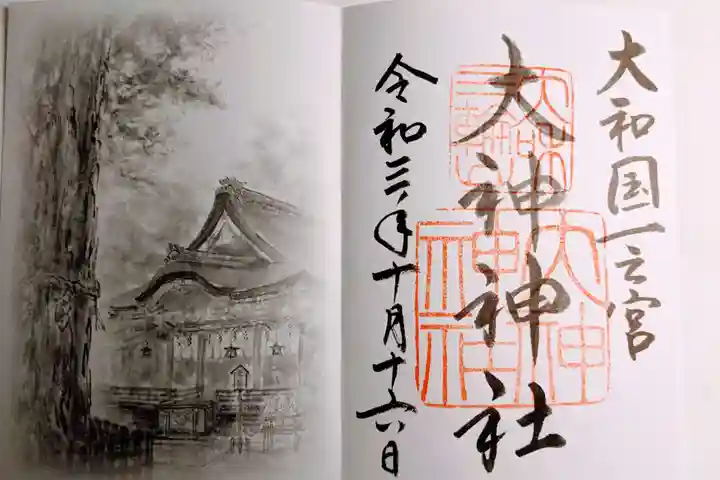 大和国一之宮
大神神社
令和三年十月十六日
大神
神社